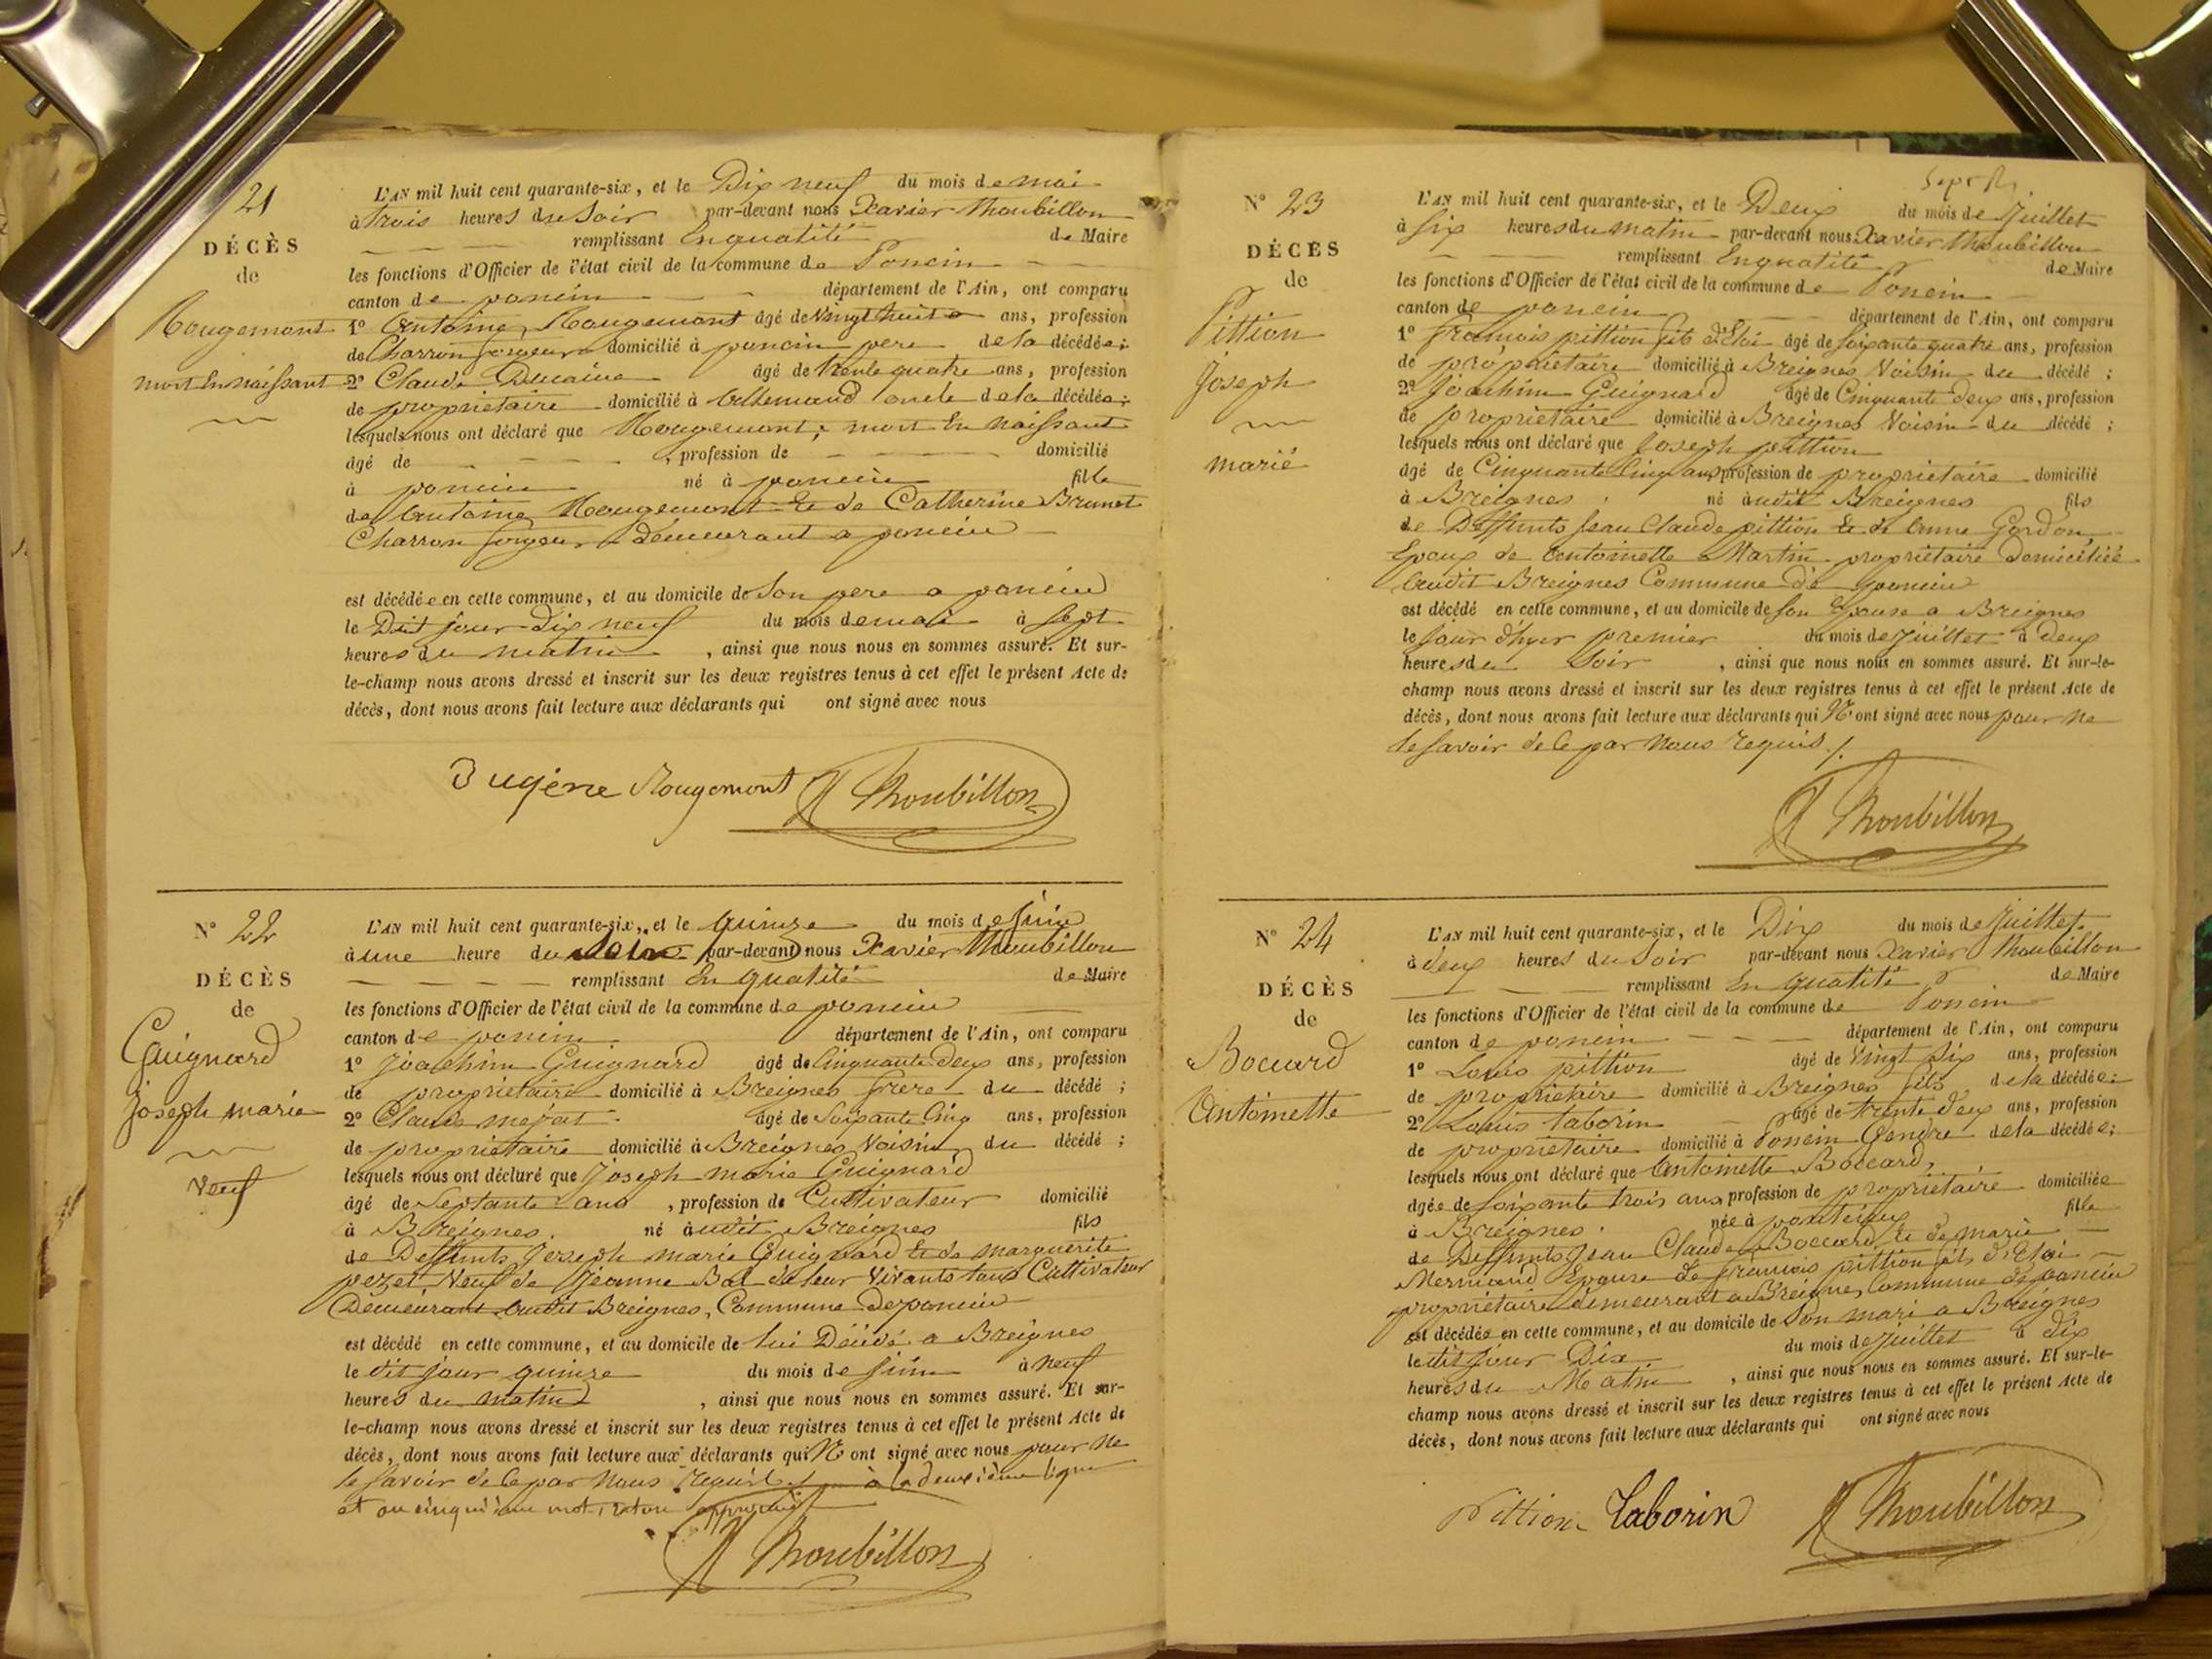 21
DÉCÈS
de
Rougemont
mort En naissant
L'AN mil huit cent quarante-six, et le Dix neuf du mois de mai
à trois heures du Soir par-devant nous Xavier Thoubillon
remplissant En qualité de Maire
les fonctions d'Officier de l'état civil de la commune de Poncin
canton de poncin département de l'Ain, ont comparu
1º Antoine Rougemont âgé de Vingt huit ans, profession
de Charron forgeur domicilié à poncin pere de la décédée;
2º Claude âgé de trente quatre ans, profession
de propriétaire domicilié à Allemand oncle de la décédée;
lesquels nous ont déclaré que Rougemont, mort En Naissant
âgé de , profession de domicilié
à poncin né à poncin fille
de Antoine Rougemont Et de Catherine Brunet
Charron forgeur Demeurant a poncin
est décédée en cette commune, et au domicile de Son pere a poncin
le Dit jour Dix neuf du mois de mai à Sept
heures du matin , ainsi que nous nous en sommes assuré. Et sur-
le-champ nous avons dressé et inscrit sur les deux registres tenus à cet effet le présent Acte de
décès, dont nous avons fait lecture aux déclarants qui ont signé avec nous
Eugène Rougemont Thoubillon
Nº 22
DÉCÈS
de
Guignard
joseph marie
Veuf
L'AN mil huit cent quarante-six, et le quinze du mois de juin
à une heure du Soir par-devant nous Xavier Thoubillon
remplissant En qualité de Maire
les fonctions d'Officier de l'état civil de la commune de poncin
canton de poncin département de l'Ain, ont comparu
1º Joachim Guignard âgé de Cinquante Deux ans, profession
de propriétaire domicilié à Breignes frere du décédé ;
2º Claude mejat âgé de Soixante Cinq ans, profession
de propriétaire domicilié à Breignes Voisin du décédé ;
lesquels nous ont déclaré que Joseph marie Guignard
âgé de Septante ans , profession de Cultivateur domicilié
à Breignes né à udit Breignes fils
de Deffunts Joseph marie Guignard Et de marguerite
pezet Veuf de Jeanne de leur Vivants tous Cultivateur
Demeurant Audit Breignes, Commune de poncin
est décédé en cette commune, et au domicile de lui Décédé a Breignes
le dit jour quinze du mois de juin à neuf
heures du matin , ainsi que nous nous en sommes assuré. Et sur-
le-champ nous avons dressé et inscrit sur les deux registres tenus à cet effet le présent Acte de
décès, dont nous avons fait lecture aux déclarants qui N'ont signé avec nous pour ne
le savoir de ce par Nous requis à la deuxième ligne
et au cinquième mot, rature approuvé
Thoubillon
Nº 23
DÉCÈS
de
Pittion
Joseph
marié
L'AN mil huit cent quarante-six, et le Deux du mois de Juillet
à Six heures du matin par-devant nous Xavier Thoubillon
remplissant En qualité de Maire
les fonctions d'Officier de l'état civil de la commune de Poncin
canton de poncin département de l'Ain, ont comparu
1º francois pittion fils d'Eloi âgé de Soixante quatre ans, profession
de propriétaire domicilié à Breignes Voisin du décédé ;
2º Joachim Guignard âgé de Cinquante deux ans, profession
de propriétaire domicilié à Breignes Voisin du décédé ;
lesquels nous ont déclaré que Joseph pittion
âgé de Cinquante Cinq ans profession de propriétaire domicilié
à Breignes né à udit Breignes fils
de Deffunts Jean Claude pittion Et de Anne Gordon,
Epoux de Antoinette Martin propriétaire Domiciliée
Audit Breignes Commune de poncin
est décédé en cette commune, et au domicile de son Epouse a Breignes
le jour d'hyer premier du mois de juillet à Deux
heures du Soir , ainsi que nous nous en sommes assuré. Et sur-le-
champ nous avons dressé et inscrit sur les deux registres tenus à cet effet le présent Acte de
décès, dont nous avons fait lecture aux déclarants qui N'ont signé avec nous pour ne
le savoir de ce par Nous requis
Thoubillon
Nº 24
DÉCÈS
de
Boccard
Antoinette
L'AN mil huit cent quarante-six, et le Dix du mois de Juillet
à deux heures du Soir par-devant nous Xavier Thoubillon
remplissant En qualité de Maire
les fonctions d'Officier de l'état civil de la commune de Poncin
canton de poncin département de l'Ain, ont comparu
1º Louis pittion âgé de Vingt Six ans, profession
de propriétaire domicilié à Breignes fils de la décédée;
2º Louis taborin âgé de trente deux ans, profession
de propriétaire domicilié à Poncin Gendre de la décédée;
lesquels nous ont déclaré que Antoinette Boccard,
âgée de Soixante trois ans profession de propriétaire domiciliée
à Breignes née à fille
de Deffunts Jean Claude Boccard Et de marie
Mermand Epouse de francois pittion fils d'Eloi
propriétaire demeurant a Breignes Commune de poncin
est décédée en cette commune, et au domicile de Son mari a Breignes
le dit Jour Dix du mois de juillet à dix
heures du Matin , ainsi que nous nous en sommes assuré. Et sur-le-
champ nous avons dressé et inscrit sur les deux registres tenus à cet effet le présent Acte de
décès, dont nous avons fait lecture aux déclarants qui ont signé avec nous
Pittion Taborin Thoubillon